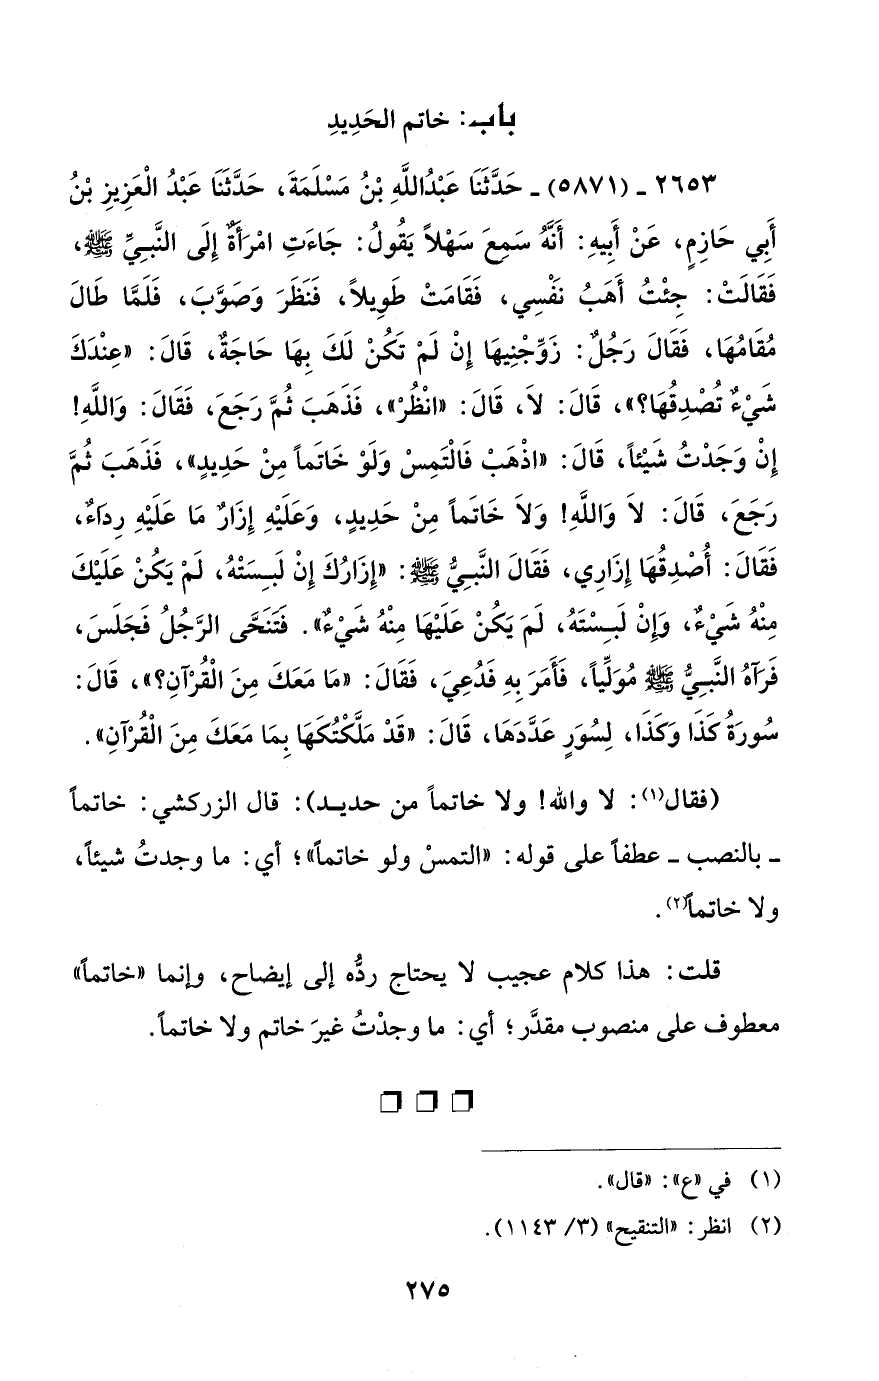 باب: خاتم الحَدِيدِ
٢٦٥٣ ـ (٥٨٧١) ـ حَدَّثَنَا عَبْدُاللَّهِ بْنُ مَسْلَمَةَ، حَدَّثَنَا عَبْدُ الْعَزِيزِ بْنُ
أَبِي حَازِمٍ، عَنْ أَبِيهِ: أَنَّهُ سَمِعَ سَهْلاً يَقُولُ: جَاءَتِ امْرَأَةٌ إِلَى النَّبِيِّ ﷺ،
فَقَالَتْ: جِئْتُ أَهَبُ نَفْسِي، فَقَامَتْ طَوِيلاً، فَنَظَرَ وَصَوَّبَ، فَلَمَّا طَالَ
مُقَامُهَا، فَقَالَ رَجُلٌ: زَوِّجْنِيهَا إِنْ لَمْ تَكُنْ لَكَ بِهَا حَاجَةٌ، قَالَ: «عِنْدَكَ
شَيْءٌ تُصْدِقُهَا؟»، قَالَ: لاَ، قَالَ: «انْظُرْ»، فَذَهَبَ ثُمَّ رَجَعَ، فَقَالَ: وَاللَّهِ!
إِنْ وَجَدْتُ شَيْئاً، قَالَ: «اذْهَبْ فَالْتَمِسْ وَلَوْ خَاتَماً مِنْ حَدِيدٍ»، فَذَهَبَ ثُمَّ
رَجَعَ، قَالَ: لاَ وَاللَّهِ! وَلاَ خَاتَماً مِنْ حَدِيدٍ، وَعَلَيْهِ إِزَارٌ مَا عَلَيْهِ رِدَاءٌ،
فَقَالَ: أُصْدِقُهَا إِزَارِي، فَقَالَ النَّبِيُّ ﷺ: «إِزَارُكَ إِنْ لَبِسَتْهُ، لَمْ يَكُنْ عَلَيْكَ
مِنْهُ شَيْءٌ، وَإِنْ لَبِسْتَهُ، لَمْ يَكُنْ عَلَيْهَا مِنْهُ شَيْءٌ». فَتَنَحَّى الرَّجُلُ فَجَلَسَ،
فَرَآهُ النَّبِيُّ ﷺ مُوَلِّياً، فَأَمَرَ بِهِ فَدُعِيَ، فَقَالَ: «مَا مَعَكَ مِنَ الْقُرْآنِ؟»، قَالَ:
سُورَةُ كَذَا وَكَذَا، لِسُوَرٍ عَدَّدَهَا، قَالَ: «قَدْ مَلَّكْتُكَهَا بِمَا مَعَكَ مِنَ الْقُرْآنِ».
(فقال(١): لا والله! ولا خاتماً من حديد): قال الزركشي: خاتماً
ـ بالنصب ـ عطفاً على قوله: «التمسْ ولو خاتماً»؛ أي: ما وجدتُ شيئاً،
ولا خاتماً(٢).
قلت: هذا كلام عجيب لا يحتاج ردُّه إلى إيضاح، وإنما «خاتماً»
معطوف على منصوب مقدَّر؛ أي: ما وجدْتُ غيرَ خاتم ولا خاتماً.
(١) في «ع»: «قال».
(٢) انظر: «التنقيح» (٣/ ١١٤٣).
٢٧٥